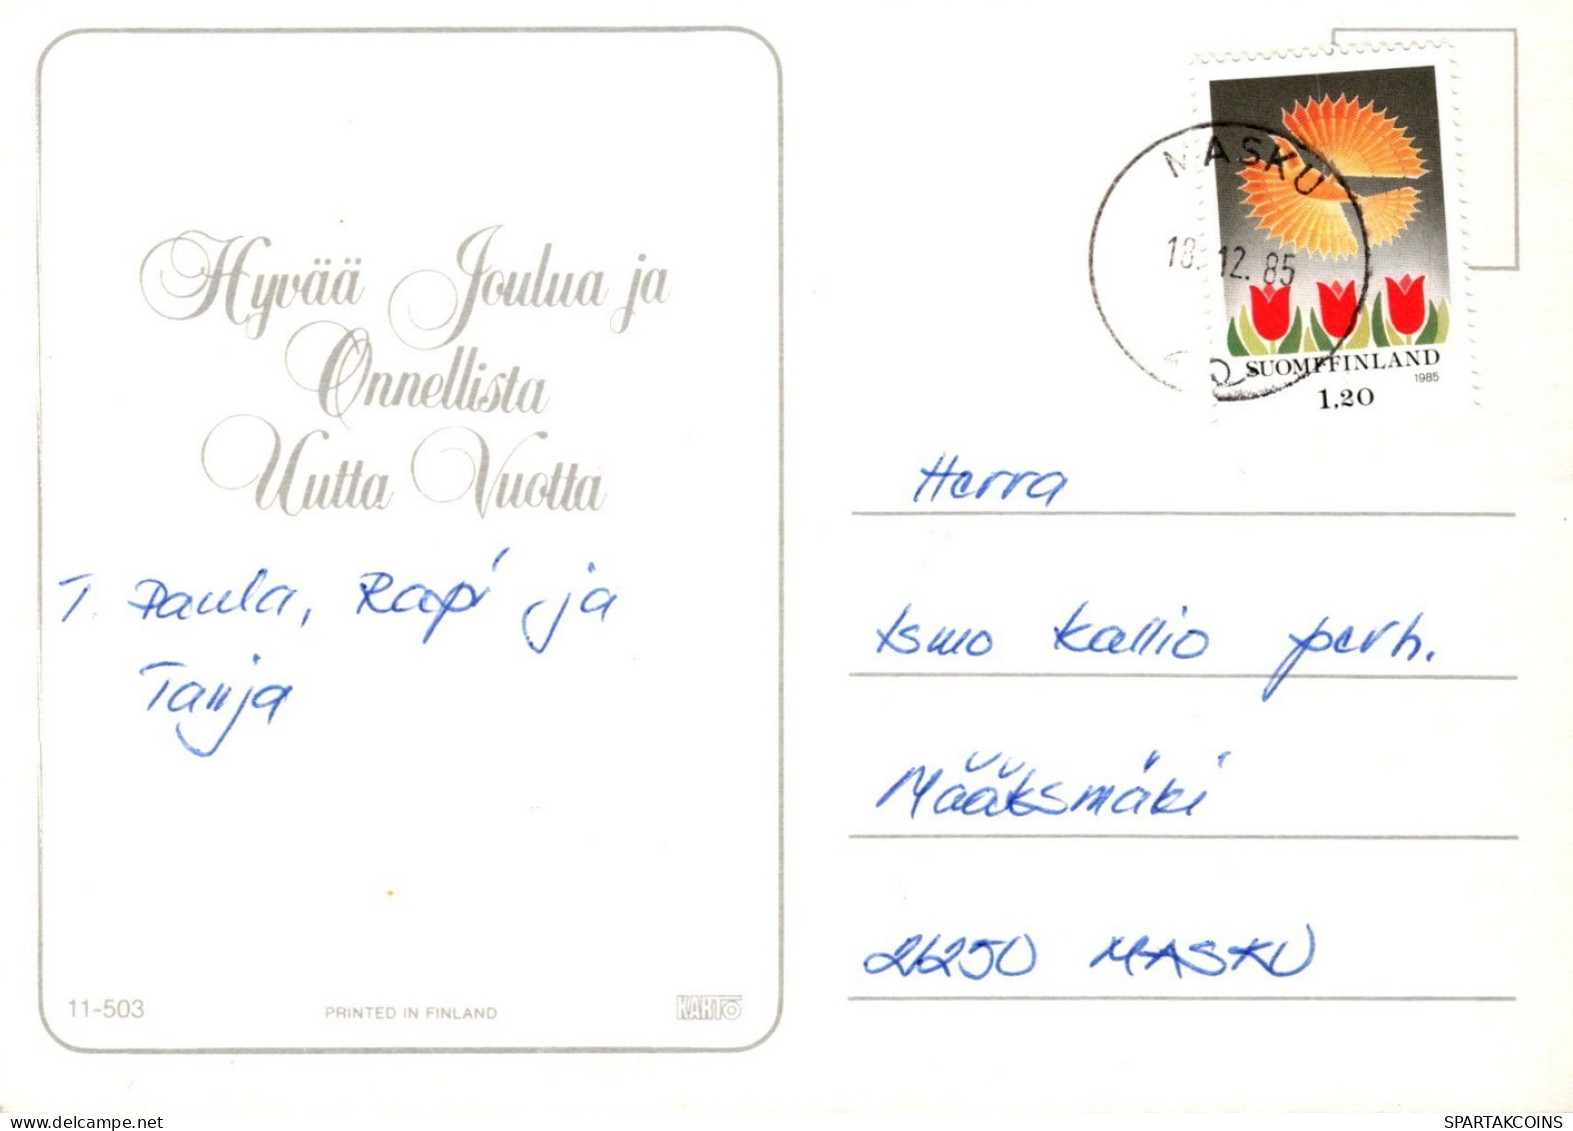 Hyvää Joulua ja
Onnellista
Uutta Vuotta
T. Paula, Rapi ja
Tanja
11-503
PRINTED IN FINLAND
KARTO
MASKU
18.12.85
SUOMI FINLAND
1985
1,20
Herra
Ismo Kallio perh.
Määksmäki
26250 MASKU
SPARTAKCOINS